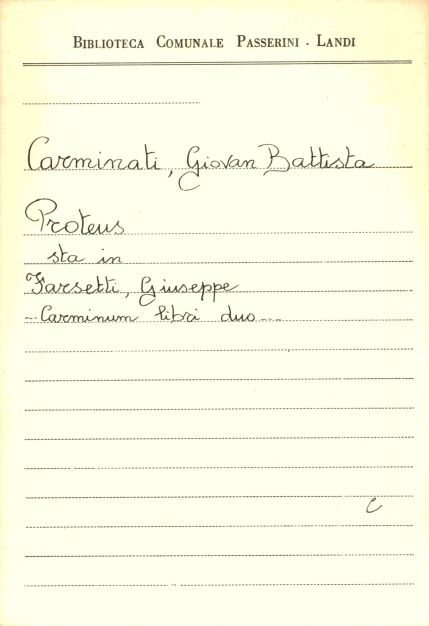 BIBLIOTECA COMUNALE PASSERINI - LANDI
Carminati, Giovan Battista
Proteus
sta in
Farsetti, Giuseppe
-- Carminum libri duo ---
C